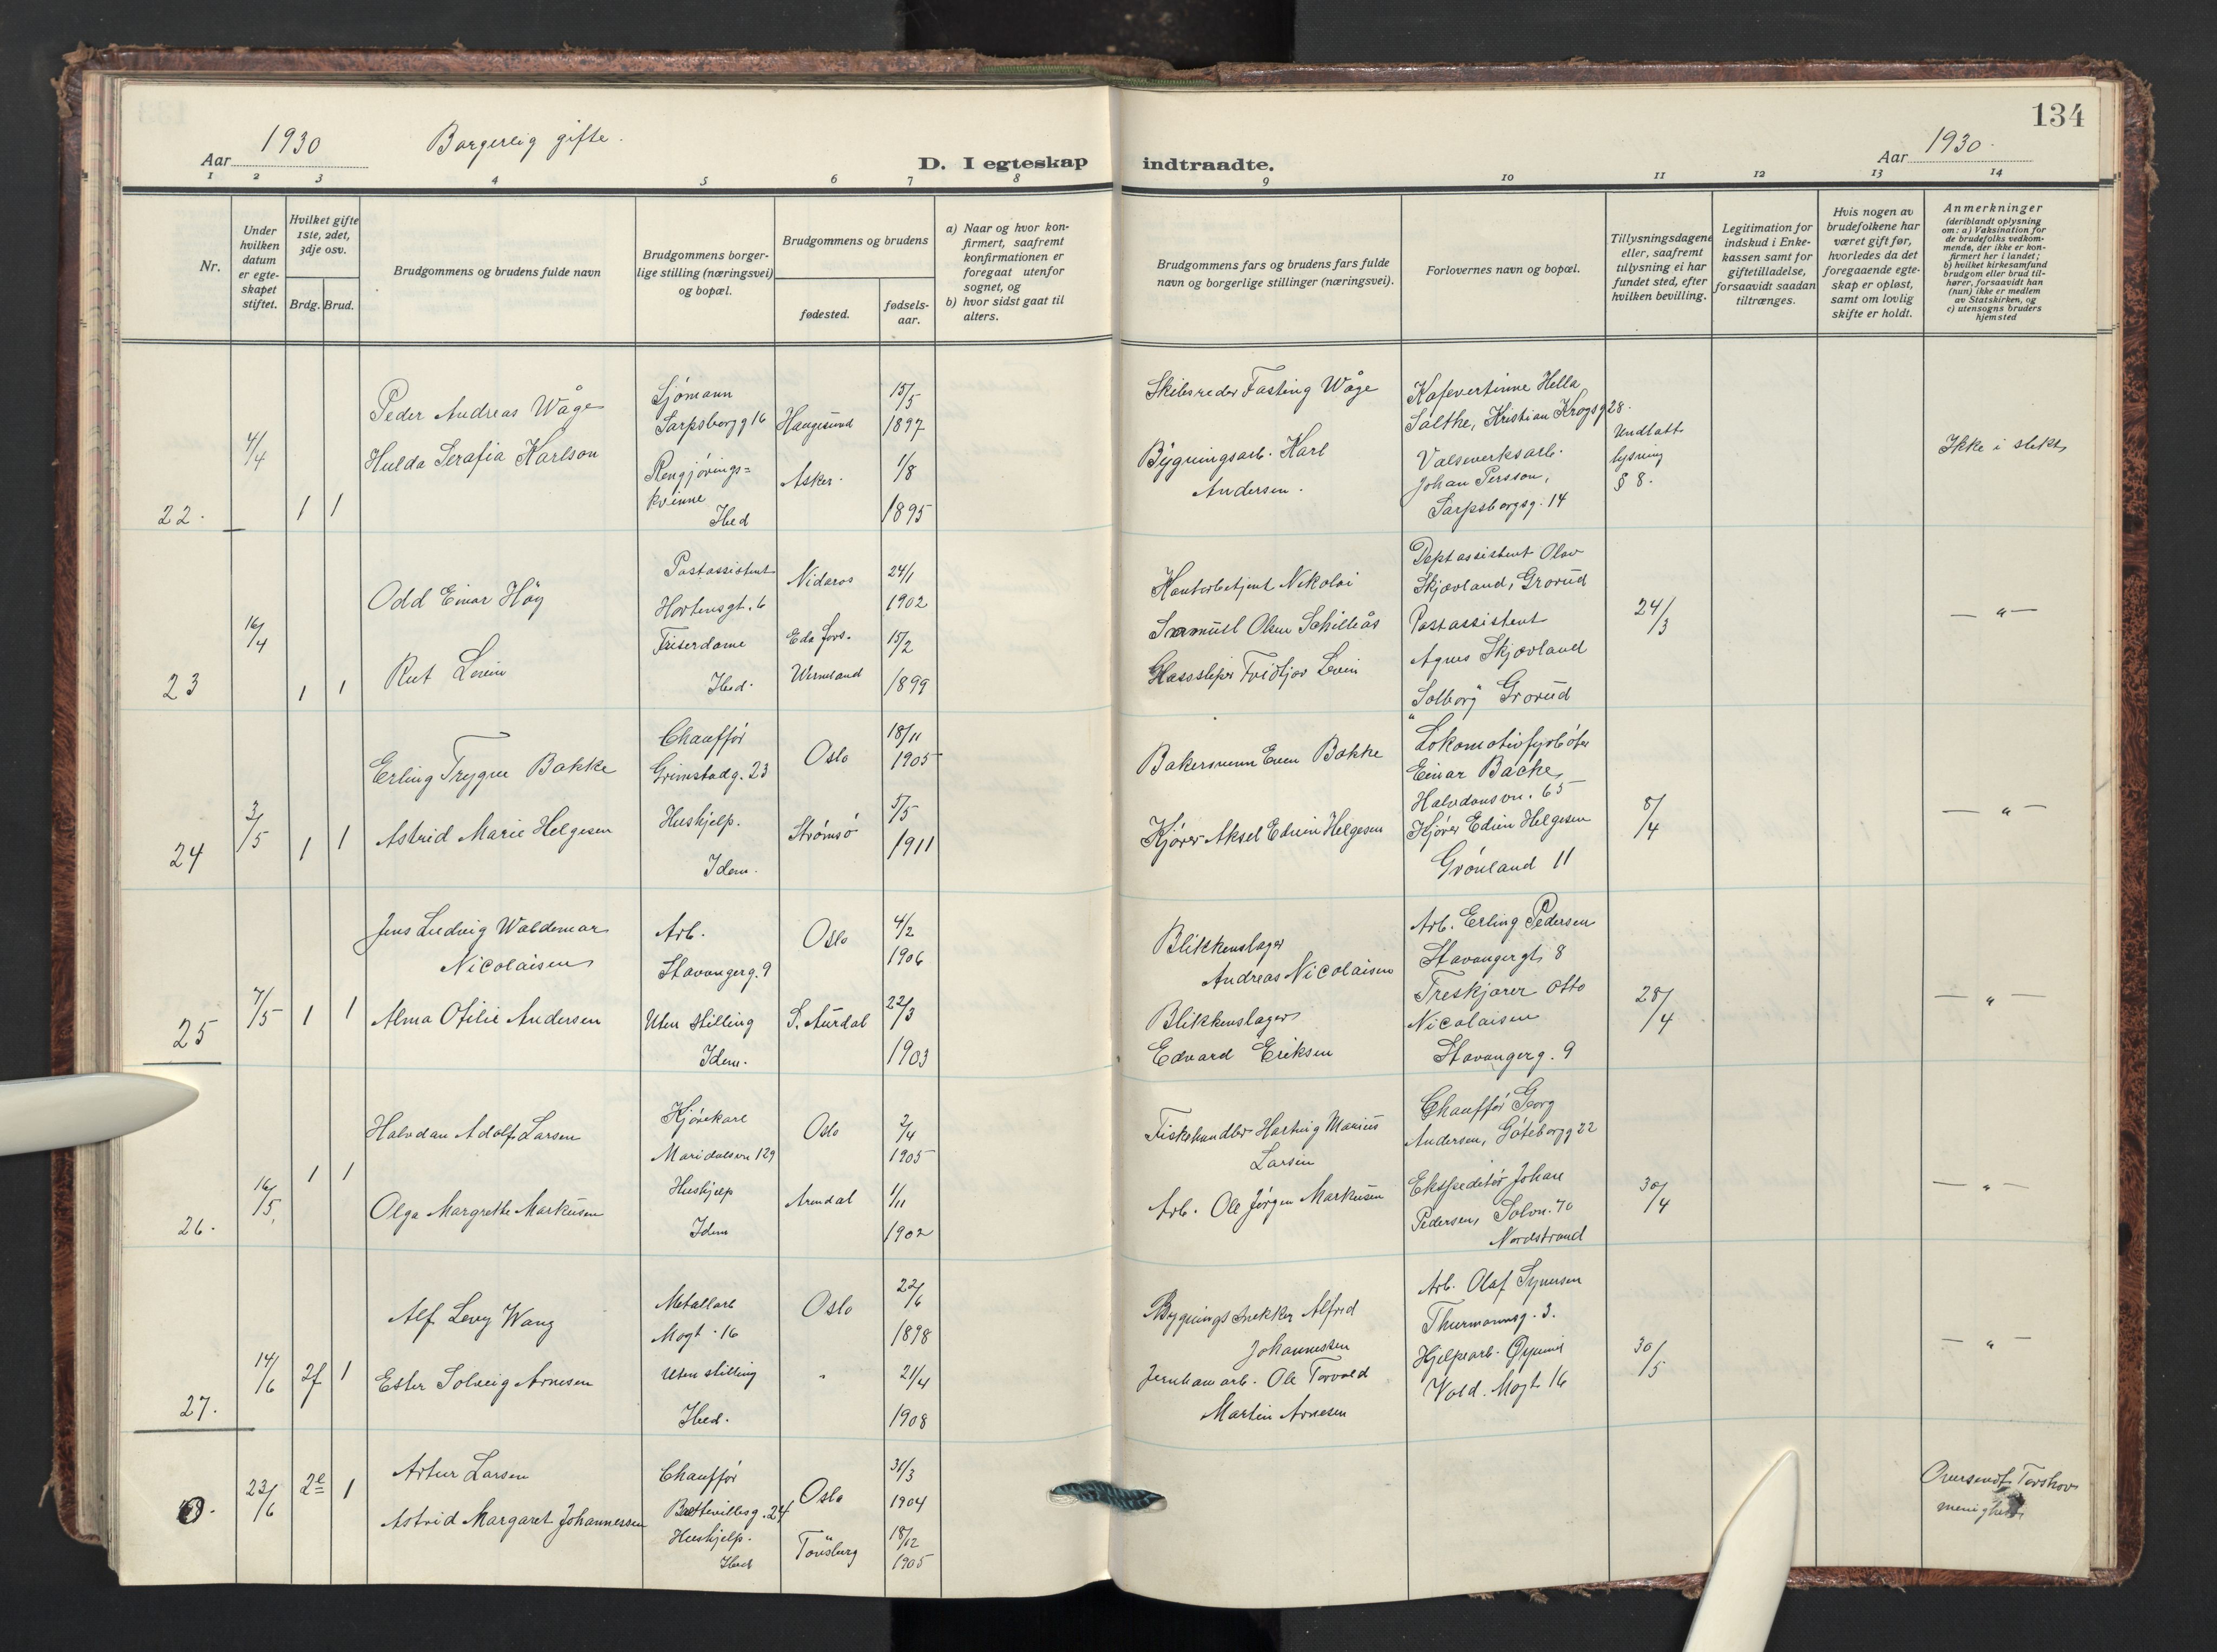 134
Aar 1930 Borgerlig gifte.
D. I egteskap indtraadte.
Aar 1930.
1 2 3 4 5 6 7 8 9 10 11 12 13 14
Nr.
Under hvilken datum er egteskapet stiftet.
Hvilket gifte 1ste, 2det, 3dje osv.
Brdg. Brud.
Brudgommens og brudens fulde navn
Brudgommens borgerlige stilling (næringsvei) og bopæl.
Brudgommens og brudens
fødested.
fødselsaar.
a) Naar og hvor konfirmert, saafremt konfirmationen er foregaat utenfor sognet, og
b) hvor sidst gaat til alters.
Brudgommens fars og brudens fars fulde navn og borgerlige stillinger (næringsvei).
Forlovernes navn og bopæl.
Tillysningsdagene eller, saafremt tillysning ei har fundet sted, efter hvilken bevilling.
Legitimation for indskud i Enkekassen samt for giftetilladelse, forsaavidt saadan tiltrænges.
Hvis nogen av brudefolkene har været gift før, hvorledes da det foregaaende egteskap er opløst, samt om lovlig skifte er holdt.
Anmerkninger
(deriblandt oplysning om: a) Vaksination for de brudefolks vedkommende, der ikke er konfirmert her i landet;
b) hvilket kirkesamfund brudgom eller brud tilhører, forsaavidt han (hun) ikke er medlem av Statskirken, og
c) utensogns bruders hjemsted
22. 4/4 1 1
Peder Andreas Våge
Sjømann
Sarpsborgg 16
Haugesund
15/5 1897
Skibsreder Fasting Våge
Kafevertinne Hella
Salthe, Kristian Krogsg 28.
Hulda Serafia Karlson
Rengjørings=
kvinne
Ibed
Asker.
1/8 1895
Bygningsarb. Karl
Andersen.
Valseverksarb.
Johan Persson,
Sarpsborgsg. 14
Undlatt
lysning
§ 8.
Ikke i slekt
23 16/4 1 1
Odd Einar Höy
Postassistent
Hortensgt. 6
Nidaros
24/1 1902
Nikolai
Olsen
Deptassistent Olav
Skjævland, Grorud
Rut Levin
Friserdame
Ibed.
Eda fors.
Wermland
15/2 1899
Glassliper Fridtjov Levin
Postassistent
Agnes Skjævland
"Solborg" Grorud
24/3
— " —
24 3/5 1 1
Erling Trygve Bakke
Chauffør
Grimstadg. 23
Oslo
18/11 1905
Bakersvenn Even Bakke
Lokomotivfyrbøter
Einar Backe,
Halvdansvn. 65
Astrid Marie Helgesen
Hushjelp.
Idem.
Strømsø
5/5 1911
Kjører Aksel Edvin Helgesen
Kjører Edvin Helgesen
Grønland 11
8/4
— " —
25 7/5 1 1
Jens Ludvig Waldemar
Nicolaisen
Arb.
Stavangerg. 9
Oslo
4/2 1906
Blikkenslager
Andreas Nicolaisen
Arb. Erling Pedersen
Stavangergt. 8
Alma Otilie Andersen
Uten stilling
Idem.
S. Aurdal
22/3 1903
Blikkenslager
Edvard Eriksen
Treskjærer Otto
Nicolaisen
Stavangerg. 9
28/4
— " —
26. 16/5 1 1
Halvdan Adolf Larsen
Kjørekarl
Maridalsvn 129
Oslo
2/4 1905
Fiskehandler Hartvig Marius
Larsen
Chauffør Georg
Andersen, Gøteborgg 22
Olga Margrethe Markussen
Hushjelp
Idem
Arendal
1/11 1902
Arb. Ole Jørgen Markussen
Ekspeditør Johan
Pedersen, Solvn. 70
Nordstrand
30/4
— " —
27. 14/6 2f 1
Alf Levy Wang
Metallarb
Mogt. 16
Oslo
22/6 1898
Bygningssnekker Alfred
Johannessen
Arb. Olaf Syversen
Thurmannsg. 3.
Ester Solveig Arnesen
Uten stilling
Ibed.
"
21/4 1908
Jernbanearb. Ole Torvald
Martin Arnesen
Hjelpearb.
Vold. Mogt. 16
30/5
— " —
23/6 2e 1
Artur Larsen
Chauffør
24
Oslo
31/3 1904
Astrid Margaret Johannessen
Hushjelp.
Ibed
Tønsberg
18/12 1905
Oversendt Torshov
menighet